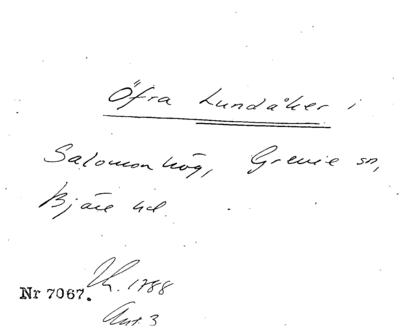 Öfra Lundåker i
Salomonhög, Grevie sn,
Bjäre hd.
Nr 7067.
1788
Ant. 3